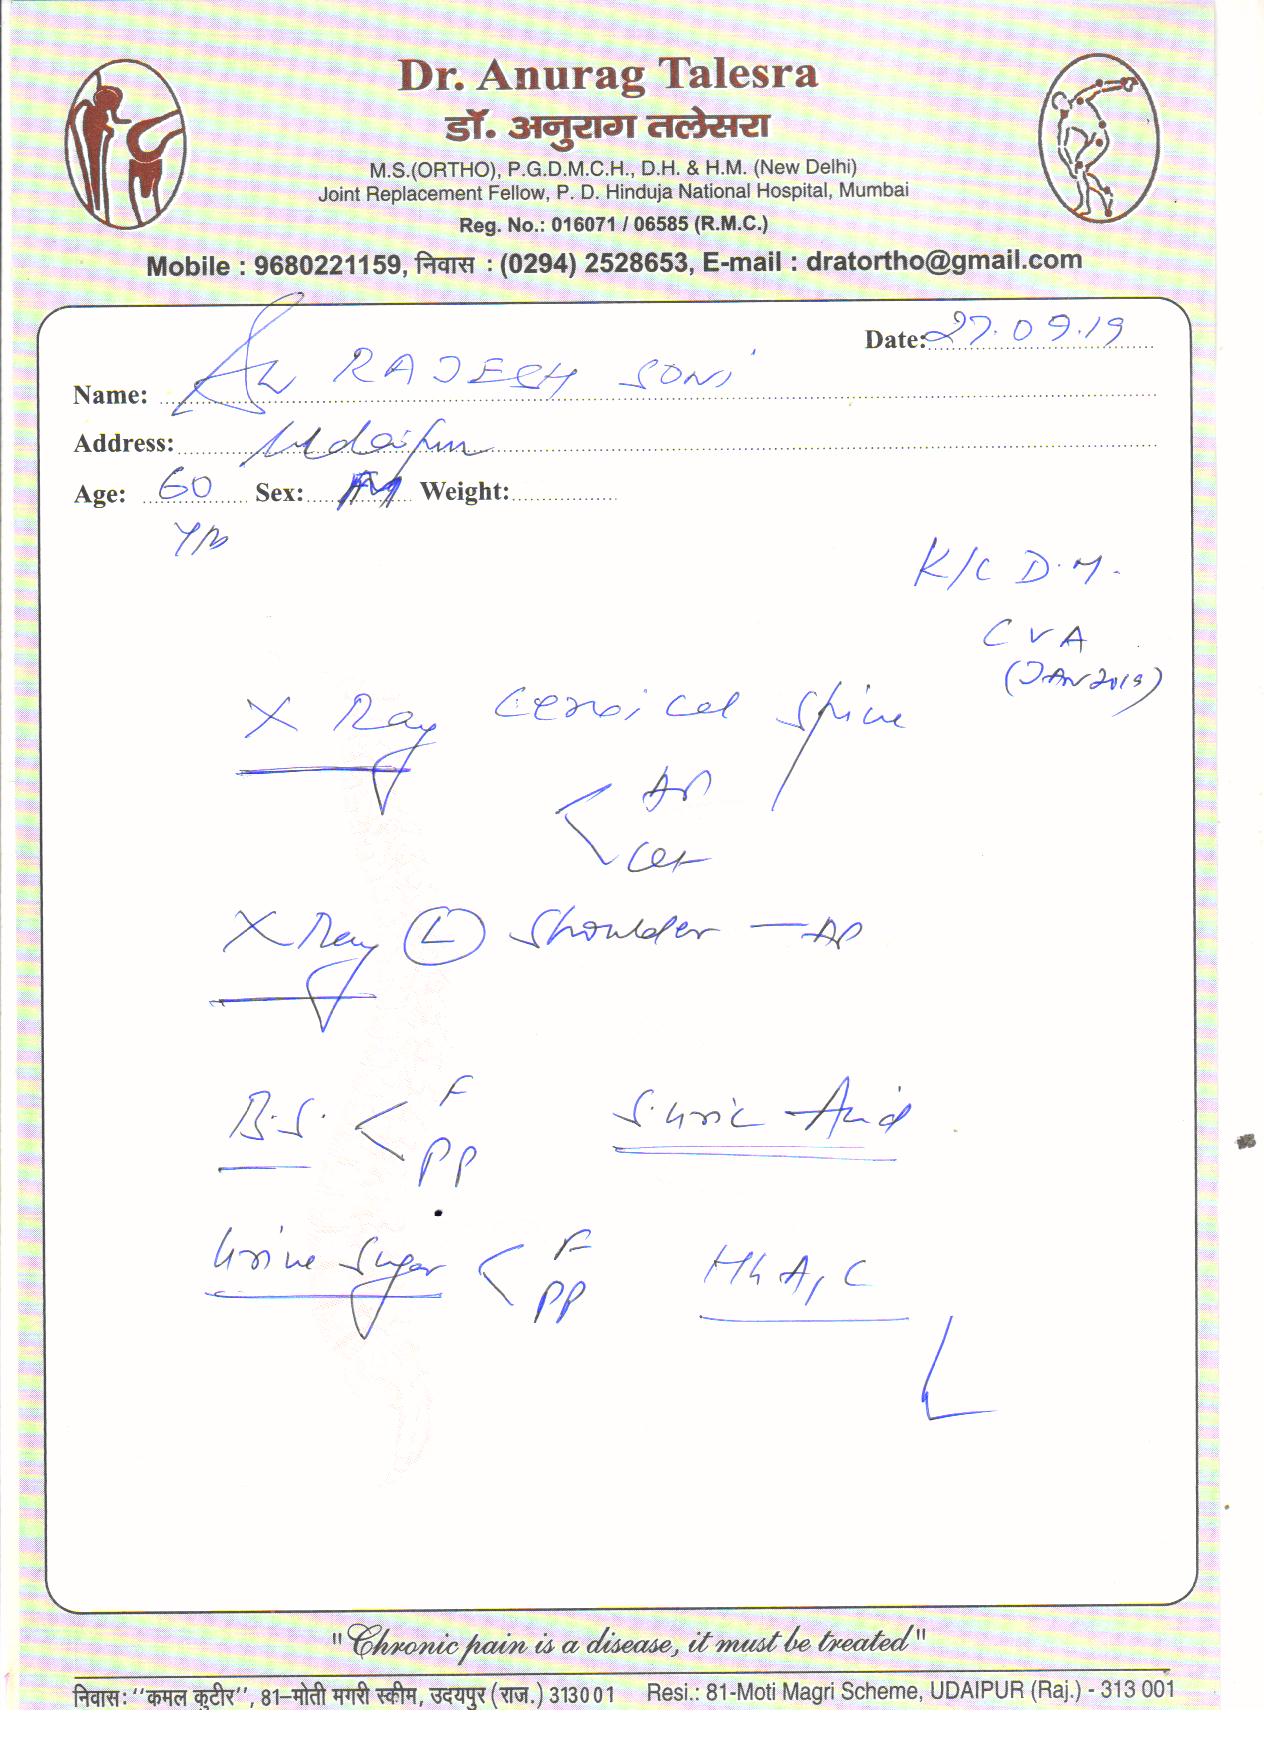 Dr. Anurag Talesra
डॉ. अनुराग तलेसरा
M.S.(ORTHO), P.G.D.M.C.H., D.H. & H.M. (New Delhi)
Joint Replacement Fellow, P. D. Hinduja National Hospital, Mumbai
Reg. No.: 016071 / 06585 (R.M.C.)
Mobile : 9680221159, निवास : (0294) 2528653, E-mail : dratortho@gmail.com
Date: 27.09.19
Name: RAJESH SONI
Address: Udaipur
Age: 60 Sex: M Weight:
K/C D.M.
CVA
(JAN 2019)
X Ray Cervical Spine
AP
Lat
X Ray L Shoulder — AP
B.S. < F
PP
S. Uric Acid
Urine Sugar < F
PP
HbA1C
"Chronic pain is a disease, it must be treated"
निवास: ''कमल कुटीर'', 81–मोती मगरी स्कीम, उदयपुर (राज.) 313001 Resi.: 81-Moti Magri Scheme, UDAIPUR (Raj.) - 313 001